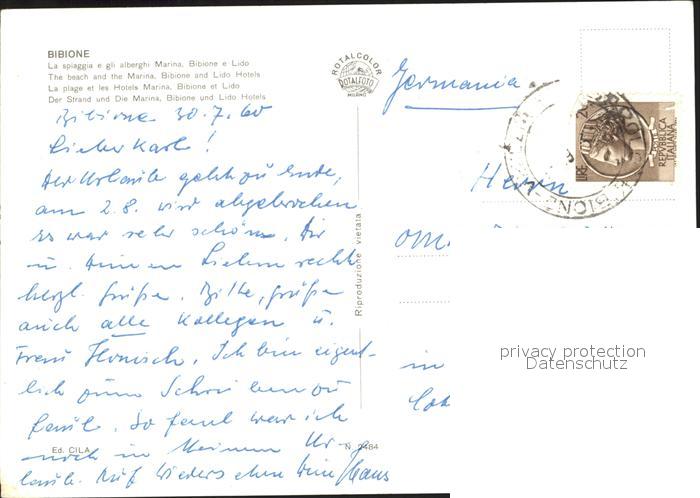 BIBIONE
La spiaggia e gli alberghi Marina, Bibione e Lido
The beach and the Marina, Bibione and Lido Hotels
La plage et les Hotels Marina, Bibione et Lido
Der Strand und Die Marina, Bibione und Lido Hotels
ROTALCOLOR
ROTALFOTO
MILANO
Bibione 30.7.60
Lieber Karl!
Der Urlaub geht zu Ende,
am 2.8. wird abgebrochen
Es war sehr schön. Dir
u. Deinen Lieben recht
herzl. Grüße. Bitte, grüße
auch alle Kollegen u.
Frau Honisch. Ich bin eigent-
lich zum Schreiben zu
faul. So faul war ich
noch in keinem Ur-
laub. Auf Wiedersehen Dein Hans
Ed. CILA
N. 2484
Riproduzione vietata
Germania
Herrn
in
LIRE
REPVBBLICA
ITALIANA
BIBIONE
privacy protection
Datenschutz